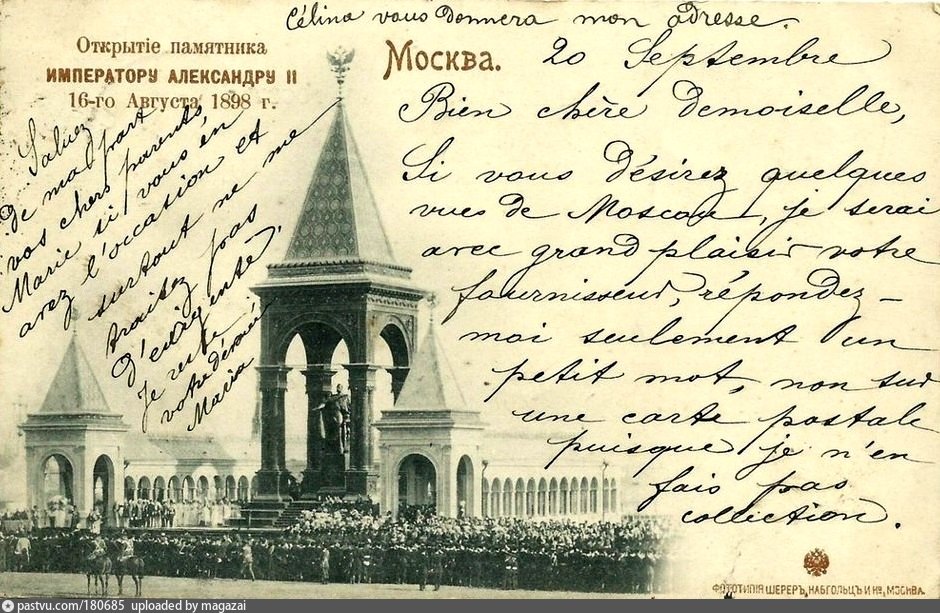 Célina vous donnera mon adresse.
Открытіе памятника
ИМПЕРАТОРУ АЛЕКСАНДРУ II
16-го Августа 1898 г.
Москва.
20 Septembre
Bien chère demoiselle,
Si vous désirez quelques
vues de Moscou, je serai
avec grand plaisir votre
fournisseur, répondez-
moi seulement un
petit mot, non sur
une carte postale
puisque je n'en
fais pas
collection.
Saluez
de ma part
vos chers parents,
Marie si vous en
avez l'occasion et
surtout ne me
traitez pas
Je
votre
Maria
ФОТОТИПІЯ ШЕРЕРЪ, НАБГОЛЬЦЪ И Кº, МОСКВА.
pastvu.com/180685 uploaded by magazai